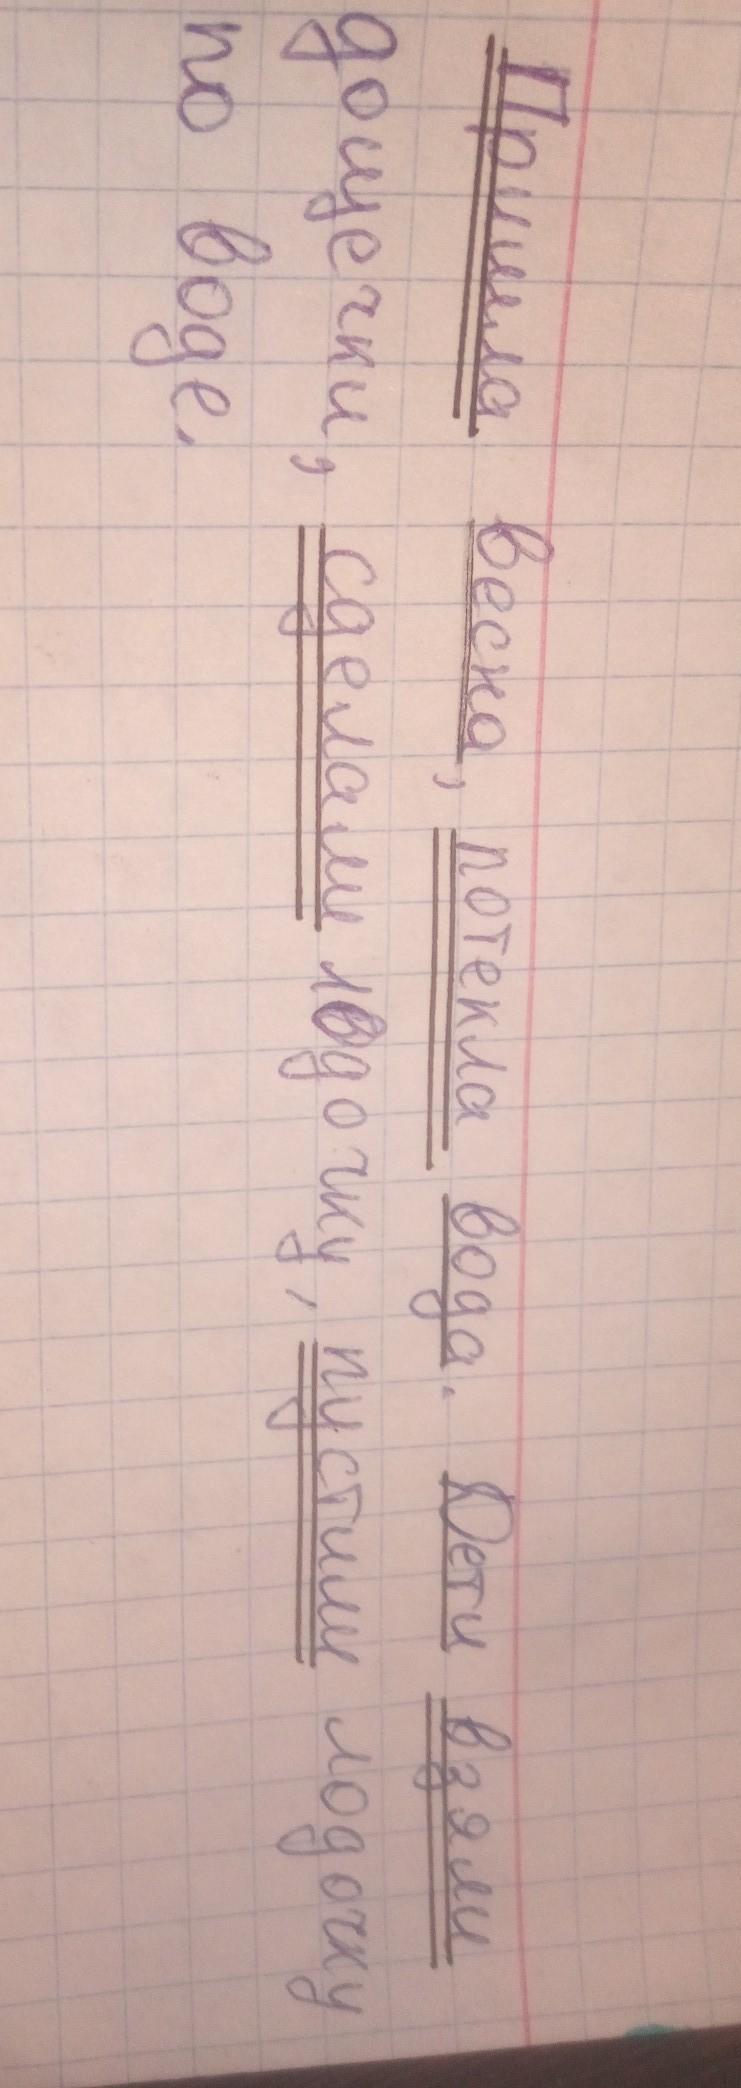 Пришла весна, потекла вода. Дети взяли
дощечки, сделали лодочку, пустили лодочку
по воде.